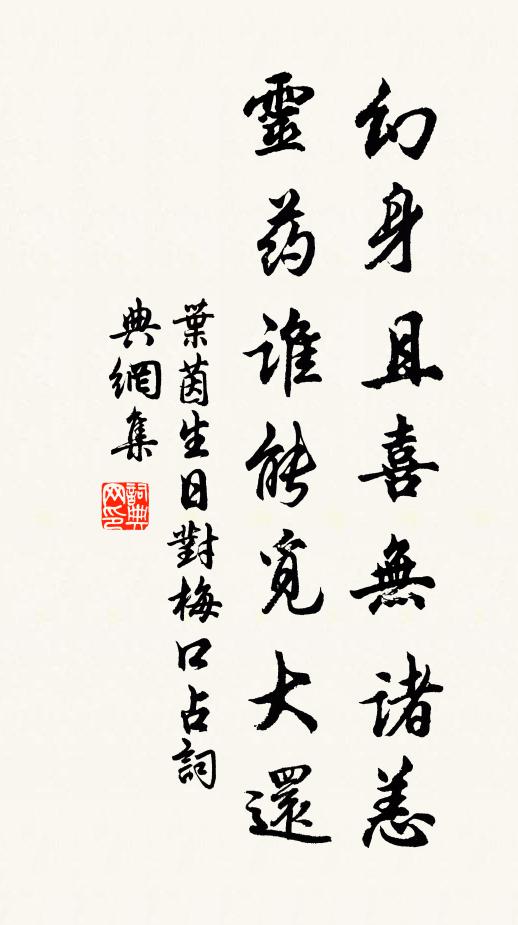 幻身且喜無諸恙
靈药誰能覓大還
葉茵生日對梅口占詞
典網集
詞典网印